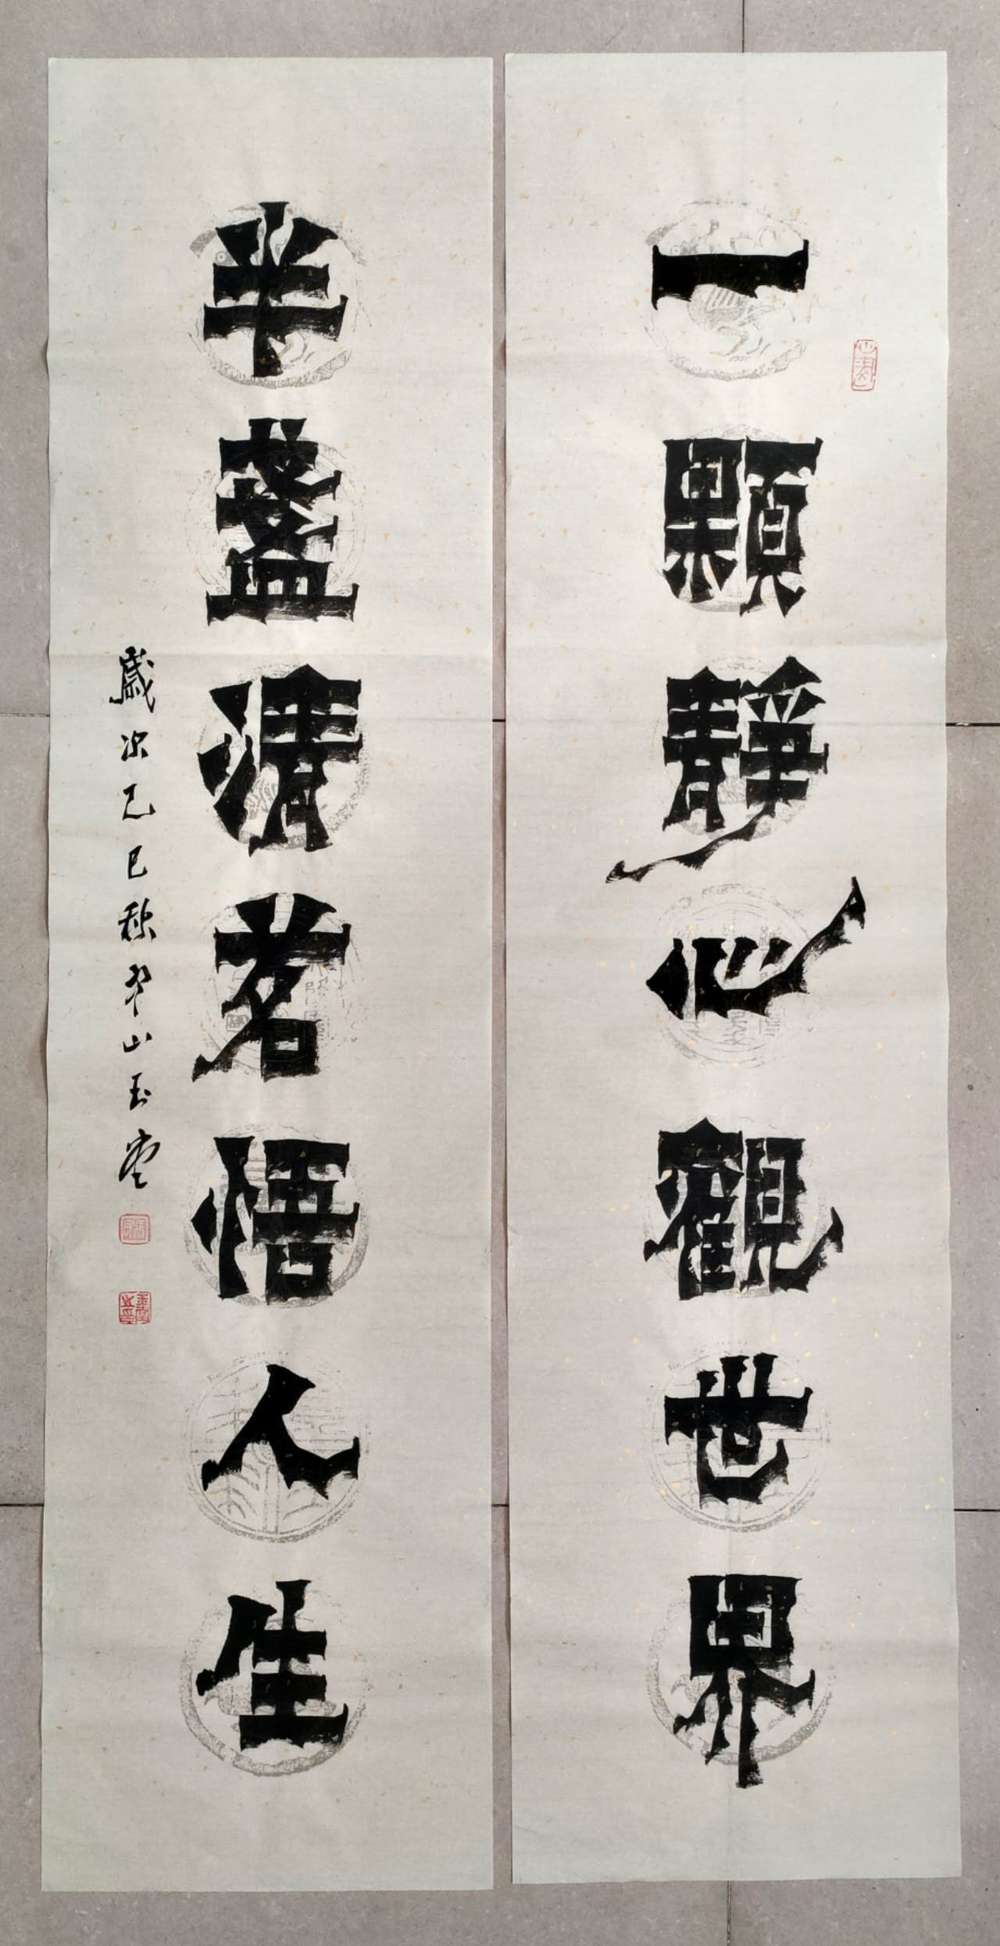 一顆靜心觀世界
半盞清茗悟人生
歲次乙巳秋 山玉堂